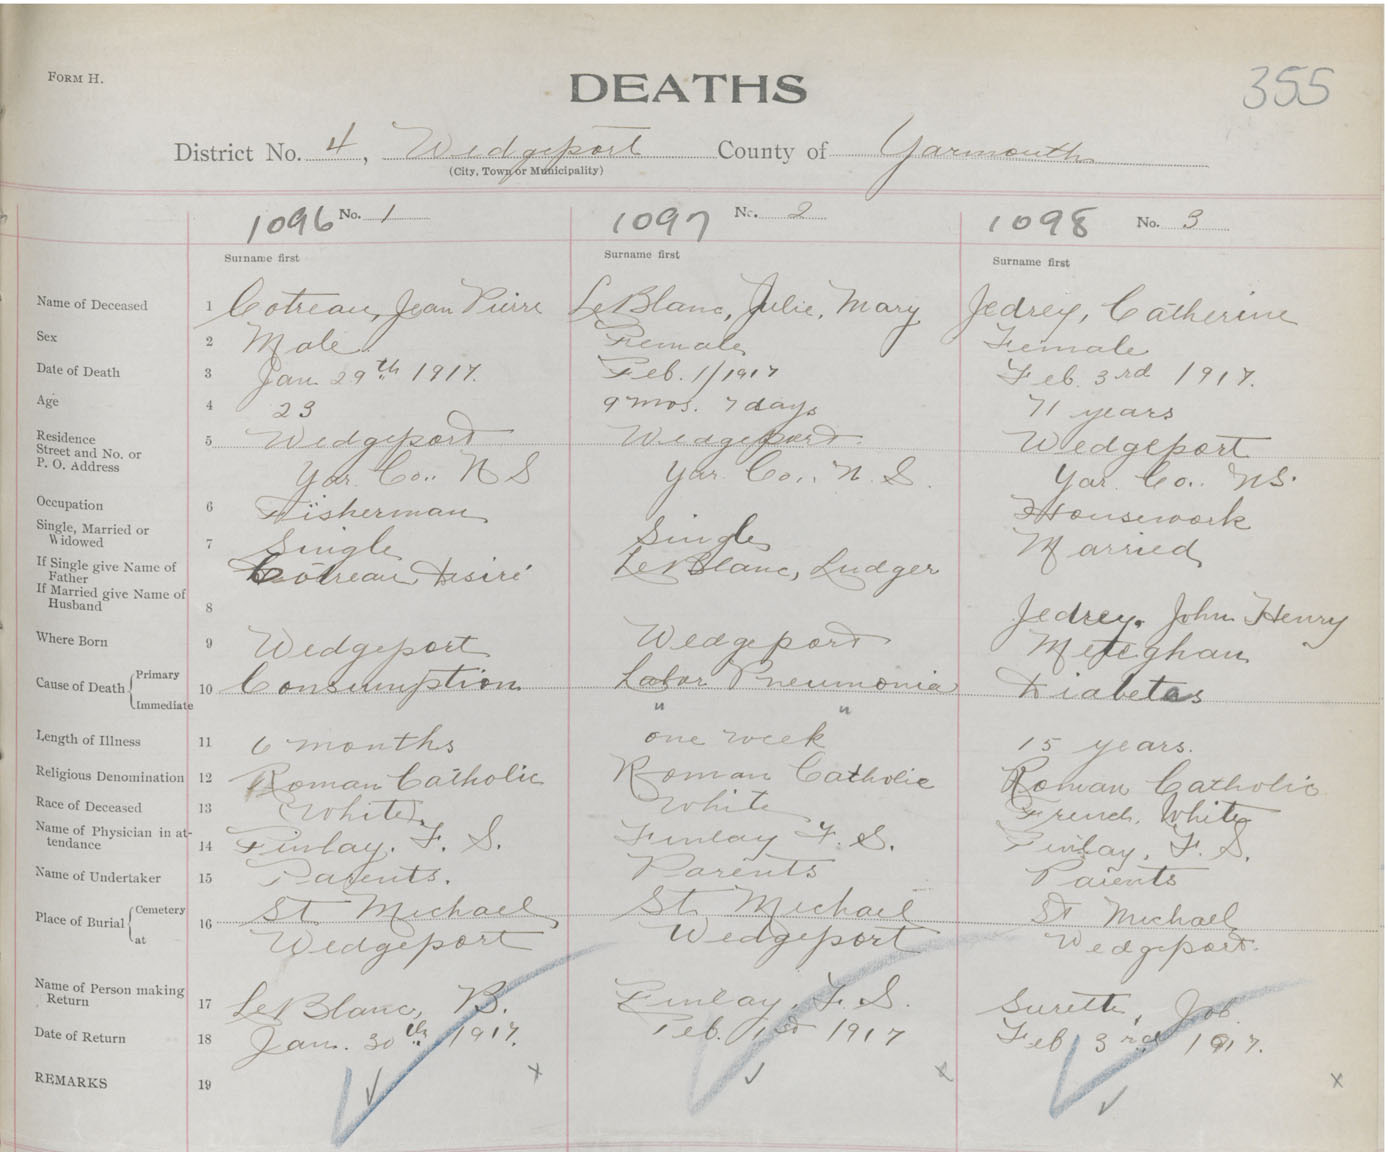 FORM H.
DEATHS
355
District No. 4, Wedgeport County of Yarmouth
(City, Town or Municipality)
1096 No. 1 1097 No. 2 1098 No. 3
Surname first Surname first Surname first
Name of Deceased 1 Cotreau, Jean Pierre LeBlanc, Julie, Mary Jedrey, Catherine
Sex 2 Male. Female Female
Date of Death 3 Jan. 29th 1917. Feb. 1/1917 Feb. 3rd 1917.
Age 4 23 9 mos. 7 days 71 years
Residence
Street and No. or
P. O. Address 5 Wedgeport Wedgeport Wedgeport
Yar. Co.. N S Yar. Co.. N. S. Yar. Co.. NS.
Occupation 6 Fisherman Housework
Single, Married or
Widowed 7 Single Single Married
If Single give Name of
Father Cotreau Desiré LeBlanc, Ludger
If Married give Name of
Husband 8 Jedrey. John Henry
Where Born 9 Wedgeport Wedgeport Meteghan
Cause of Death { Primary 10 Consumption Lobar Pneumonia Diabetes
Immediate " "
Length of Illness 11 6 months one week 15 years.
Religious Denomination 12 Roman Catholic Roman Catholic Roman Catholic
Race of Deceased 13 White. White French. White
Name of Physician in at-
tendance 14 Finlay. F. S. Finlay F. S. Finlay, F. S.
Name of Undertaker 15 Parents. Parents Parents
Place of Burial { Cemetery 16 St Michael St. Michael St Michael
at Wedgeport Wedgeport Wedgeport.
Name of Person making
Return 17 LeBlanc, B. Finlay, F. S. Surette, Job.
Date of Return 18 Jan. 30th 1917. Feb. 1st 1917 Feb 3rd 1917.
REMARKS 19 ✓ x ✓ x ✓ x